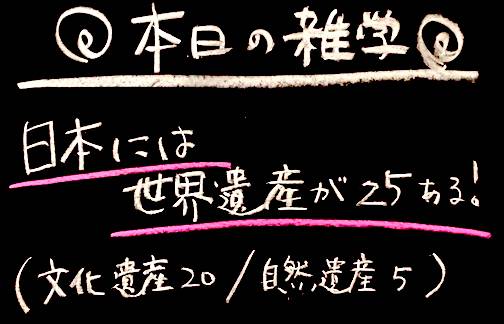 本日の雑学
日本には
世界遺産が25ある!
(文化遺産20/自然遺産5)